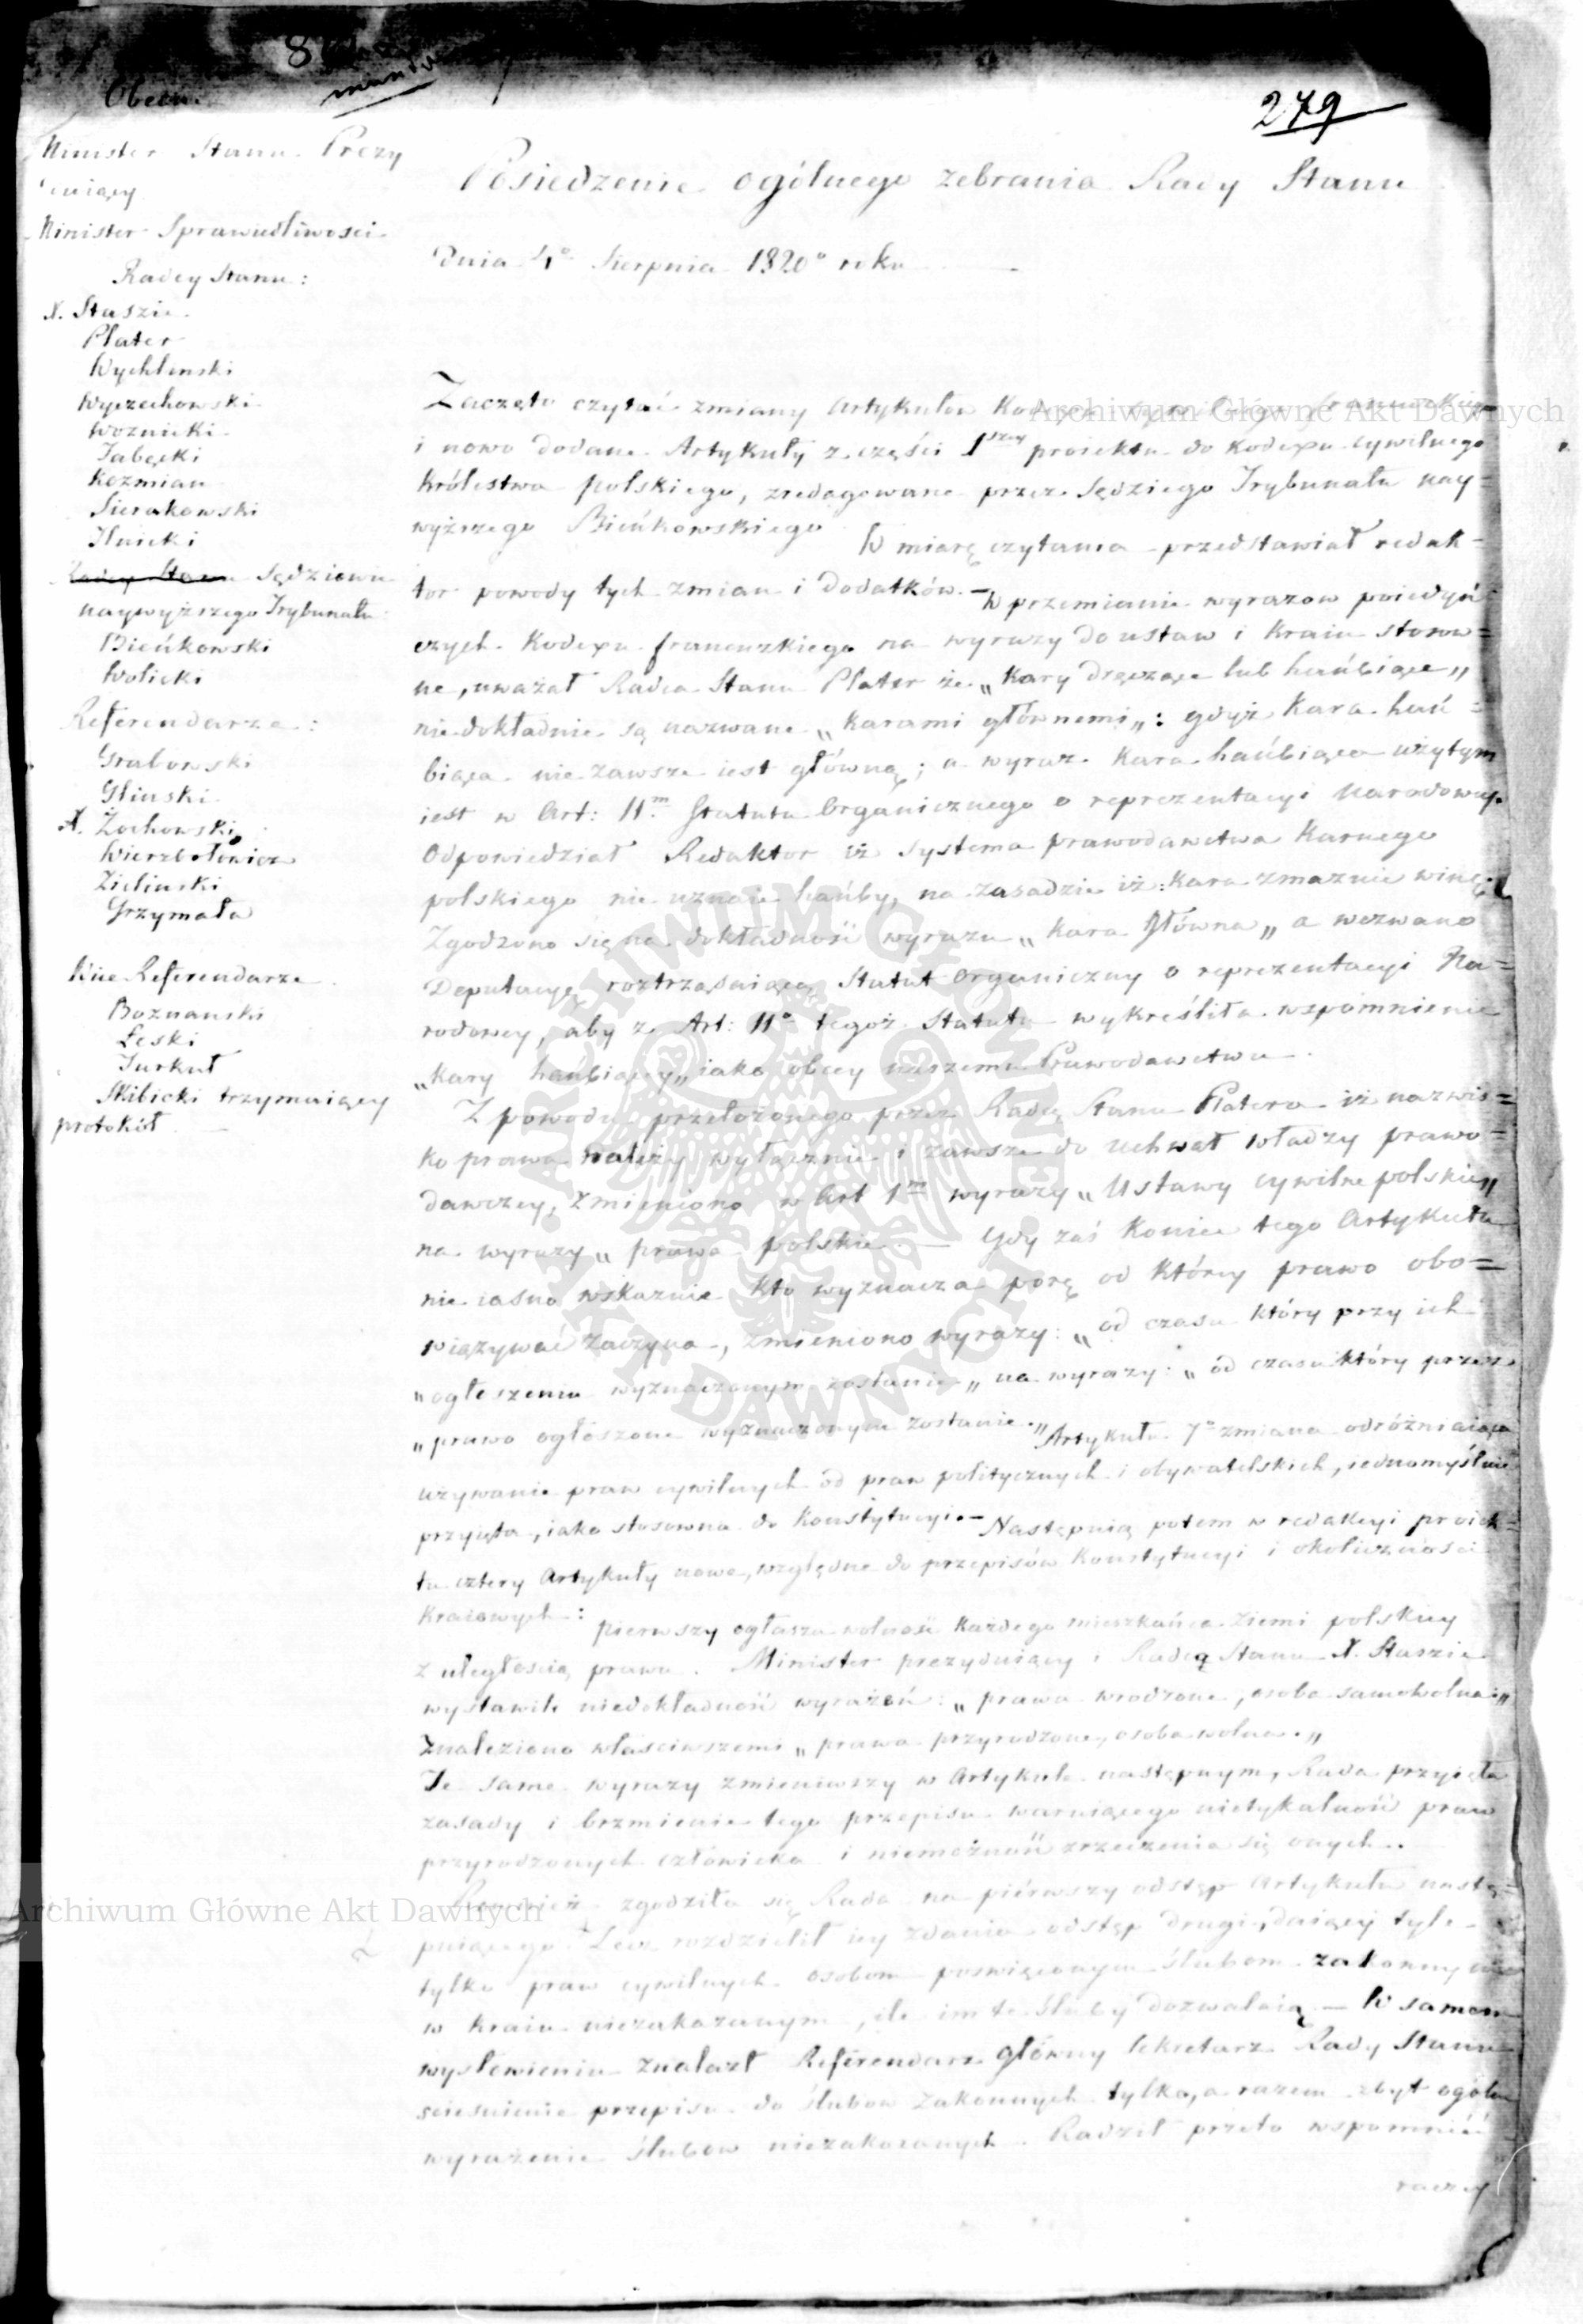 279
Obecni
Minister Stanu Prezy
duiący
Minister Sprawiedliwości
Radcy Stanu:
X. Staszic
Plater
Wychliński
Wyczechowski
Woźnicki
Kozmian
Sierakowski
Ilnicki
Radcy Stanu Sędziowie
naywyższego Trybunału
Bieńkowski
Wolicki
Referendarze:
Grabowski
Gliński
X. Żochowski
Wierzbołowicz
Zieliński
Grzymała
Referendarze
Boznański
Łęski
Turkuł
Skibicki trzymaiący
protokół
Posiedzenie ogólnego zebrania Rady Stanu
Dnia 4° Sierpnia 1820° roku
Zaczęto czytać zmiany Artykułów Kodexu cywilnego francuzkiego
i nowo dodane Artykuły z części 1szey proiektu do Kodexu cywilnego
Królestwa polskiego, zredagowane przez Sędziego Trybunału nay=
wyższego Bieńkowskiego W miarę czytania przedstawiał redak=
tor powody tych zmian i dodatków. — W przemianie wyrazów poiedyń=
czych Kodexu francuzkiego na wyrazy do ustaw i Kraiu stosow=
ne, uważał Radca Stanu Plater że „Kary dręczące lub hańbiące„
niedokładnie są nazwane „Karami głównemi„: gdyż Kara hań=
biąca nie zawsze iest główną; a wyraz Kara hańbiąca użytym
iest w Art: 11m Statutu Organicznego o reprezentacyi Narodowey.
Odpowiedział Redaktor iż systema prawodawstwa Karnego
polskiego nie uznaie hańby, na zasadzie iż: Kara zmazuie winę.
Zgodzono się na dokładność wyrazu „Kara Główna„ a wezwano
Deputacyę roztrząsaiącą Statut Organiczny o reprezentacyi Na=
rodowey, aby z Art: 11° tegoż Statutu wykreśliła wzpomnienie
„Kary hańbiącey„ iako obcey naszemu Prawodawstwu.
Z powodu przełożonego przez Radcę Stanu Platera iż nazwis=
ko prawa należy wyłącznie i zawsze do uchwał władzy prawo=
dawczey, zmieniono w Art 1m wyrazy „Ustawy cywilne polskie„
na wyrazy „prawa polskie — Gdy zaś Koniec tego Artykułu
nie iasno wskazuie kto wyznacza porę od którey prawo obo=
wiązywać zaczyna, zmieniono wyrazy: „od czasu który przy ich
„ogłoszeniu wyznaczonym zostanie„ na wyrazy: „od czasu który przez
„prawo ogłoszone wyznaczonym zostanie.„ Artykułu 7° zmiana odróżniaiąca
używanie praw cywilnych od praw politycznych i obywatelskich, iednomyślnie
przyięta, iako stosowna do Konstytucyi. — Następuią potem w redakcyi proiek=
tu cztery Artykuły nowe, względne do przepisów Konstytucyi i okoliczności
Kraiowych: pierwszy ogłasza wolność Każdego mieszkańca ziemi polskiey
z uległością prawu. Minister prezyduiący i Radca Stanu X. Staszic
wystawili niedokładność wyrażeń: „prawa wrodzone, osoba samowolna„
znaleziono właściwszemi „prawa przyrodzone, osoba wolna.„
Te same wyrazy zmieniwszy w Artykule następnym, Rada przyięła
zasady i brzmienie tego przepisu waruiącego nietykalność praw
przyrodzonych człowieka i niemożność zrzeczenia się onych.
Również zgodziła się Rada na pierwszy odstęp Artykułu nastę=
puiącego. Lecz rozdzielił iey zdania odstęp drugi, daiący tyle
tylko praw cywilnych osobom poswięconym ślubom zakonnym
w Kraiu niezakazanym, ile im te śluby dozwalaią. — W samem
wysłowieniu znalazł Referendarz główny Sekretarz Rady Stanu
ścieśnienie przepisu do ślubów Zakonnych tylko, a razem zbyt ogólne
wyrażenie ślubów niezakazanych. Radził przeto wspomnieć
raczey
Archiwum Główne Akt Dawnych
Archiwum Główne Akt Dawnych
ARCHIWUM GŁÓWNE
AKT DAWNYCH